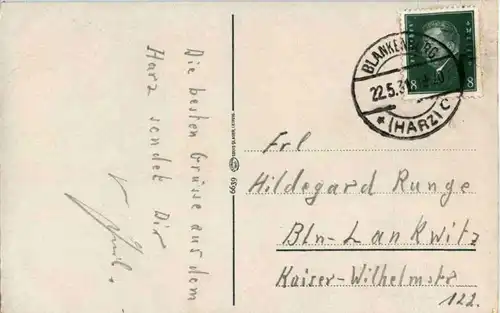 Die besten Grüsse aus dem
Harz sendet Dir
6639
BLANKENBURG
22.5.31
* (HARZ) C
8 8
Frl
Hildegard Runge
Bln-Lankwitz
Kaiser-Wilhelmstr
122.